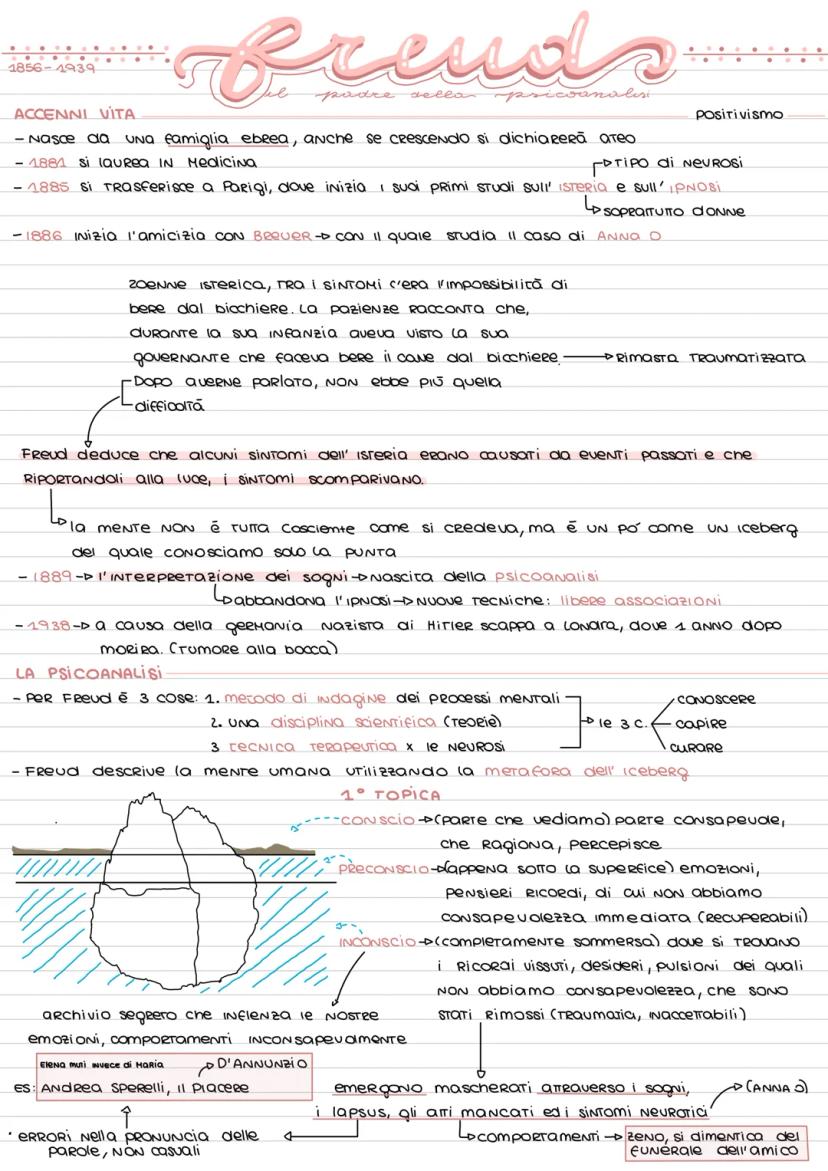 freud
1856-1939
il padre della psicoanalisi
ACCENNI VITA
POSITIVISMO
- NASCE DA UNA FAMIGLIA EBREA, ANCHE SE CRESCENDO SI DICHIARERÀ ATEO
- 1881 SI LAUREA IN MEDICINA
TIPO DI NEUROSI
- 1885 SI TRASFERISCE A PARIGI, DOVE INIZIA I SUOI PRIMI STUDI SULL' ISTERIA E SULL' IPNOSI
SOPRATTUTTO DONNE
- 1886 INIZIA L'AMICIZIA CON BREUER → CON IL QUALE STUDIA IL CASO DI ANNA O
ZOENNE ISTERICA, TRA I SINTOMI C'ERA L'IMPOSSIBILITÀ DI
BERE DAL BICCHIERE. LA PAZIENZE RACCONTA CHE,
DURANTE LA SUA INFANZIA AVEVA VISTO LA SUA
GOVERNANTE CHE FACEVA BERE IL CANE DAL BICCHIERE. → RIMASTA TRAUMATIZZATA
DOPO AVERNE PARLATO, NON EBBE PIÙ QUELLA
DIFFICOLTÀ
FREUD DEDUCE CHE ALCUNI SINTOMI DELL' ISTERIA ERANO CAUSATI DA EVENTI PASSATI E CHE
RIPORTANDOLI ALLA LUCE, I SINTOMI SCOMPARIVANO.
LA MENTE NON È TUTTA COSCIENTE COME SI CREDEVA, MA È UN PO' COME UN ICEBERG
DEL QUALE CONOSCIAMO SOLO LA PUNTA
- 1889 → L'INTERPRETAZIONE DEI SOGNI → NASCITA DELLA PSICOANALISI
ABBANDONA L'IPNOSI → NUOVE TECNICHE: LIBERE ASSOCIAZIONI
- 1938 → A CAUSA DELLA GERMANIA NAZISTA DI HITLER SCAPPA A LONDRA, DOVE 1 ANNO DOPO
MORIRA. (TUMORE ALLA BOCCA)
LA PSICOANALISI
- PER FREUD È 3 COSE: 1. METODO DI INDAGINE DEI PROCESSI MENTALI
2. UNA DISCIPLINA SCIENTIFICA (TEORIE)
3 TECNICA TERAPEUTICA x LE NEUROSI
LE 3 C.
CONOSCERE
CAPIRE
CURARE
- FREUD DESCRIVE LA MENTE UMANA UTILIZZANDO LA METAFORA DELL' ICEBERG
1° TOPICA
CONSCIO → (PARTE CHE VEDIAMO) PARTE CONSAPEVOLE,
CHE RAGIONA, PERCEPISCE
PRECONSCIO → (APPENA SOTTO LA SUPERFICE) EMOZIONI,
PENSIERI RICORDI, DI CUI NON ABBIAMO
CONSAPEVOLEZZA IMMEDIATA (RECUPERABILI)
INCONSCIO → (COMPLETAMENTE SOMMERSA) DOVE SI TROVANO
I RICORDI VISSUTI, DESIDERI, PULSIONI DEI QUALI
NON ABBIAMO CONSAPEVOLEZZA, CHE SONO
STATI RIMOSSI (TRAUMATIA, INACCETTABILI)
ARCHIVIO SEGRETO CHE INFLENZA LE NOSTRE
EMOZIONI, COMPORTAMENTI INCONSAPEVOLMENTE
ELENA MUTI INVECE DI MARIA
D'ANNUNZIO
ES: ANDREA SPERELLI, IL PIACERE
EMERGONO MASCHERATI ATTRAVERSO I SOGNI,
(ANNA O)
I LAPSUS, GLI ATTI MANCATI ED I SINTOMI NEUROTICI
ERRORI NELLA PRONUNCIA DELLE
PAROLE, NON CASUALI
COMPORTAMENTI → ZENO, SI DIMENTICA DEL
FUNERALE DELL'AMICO